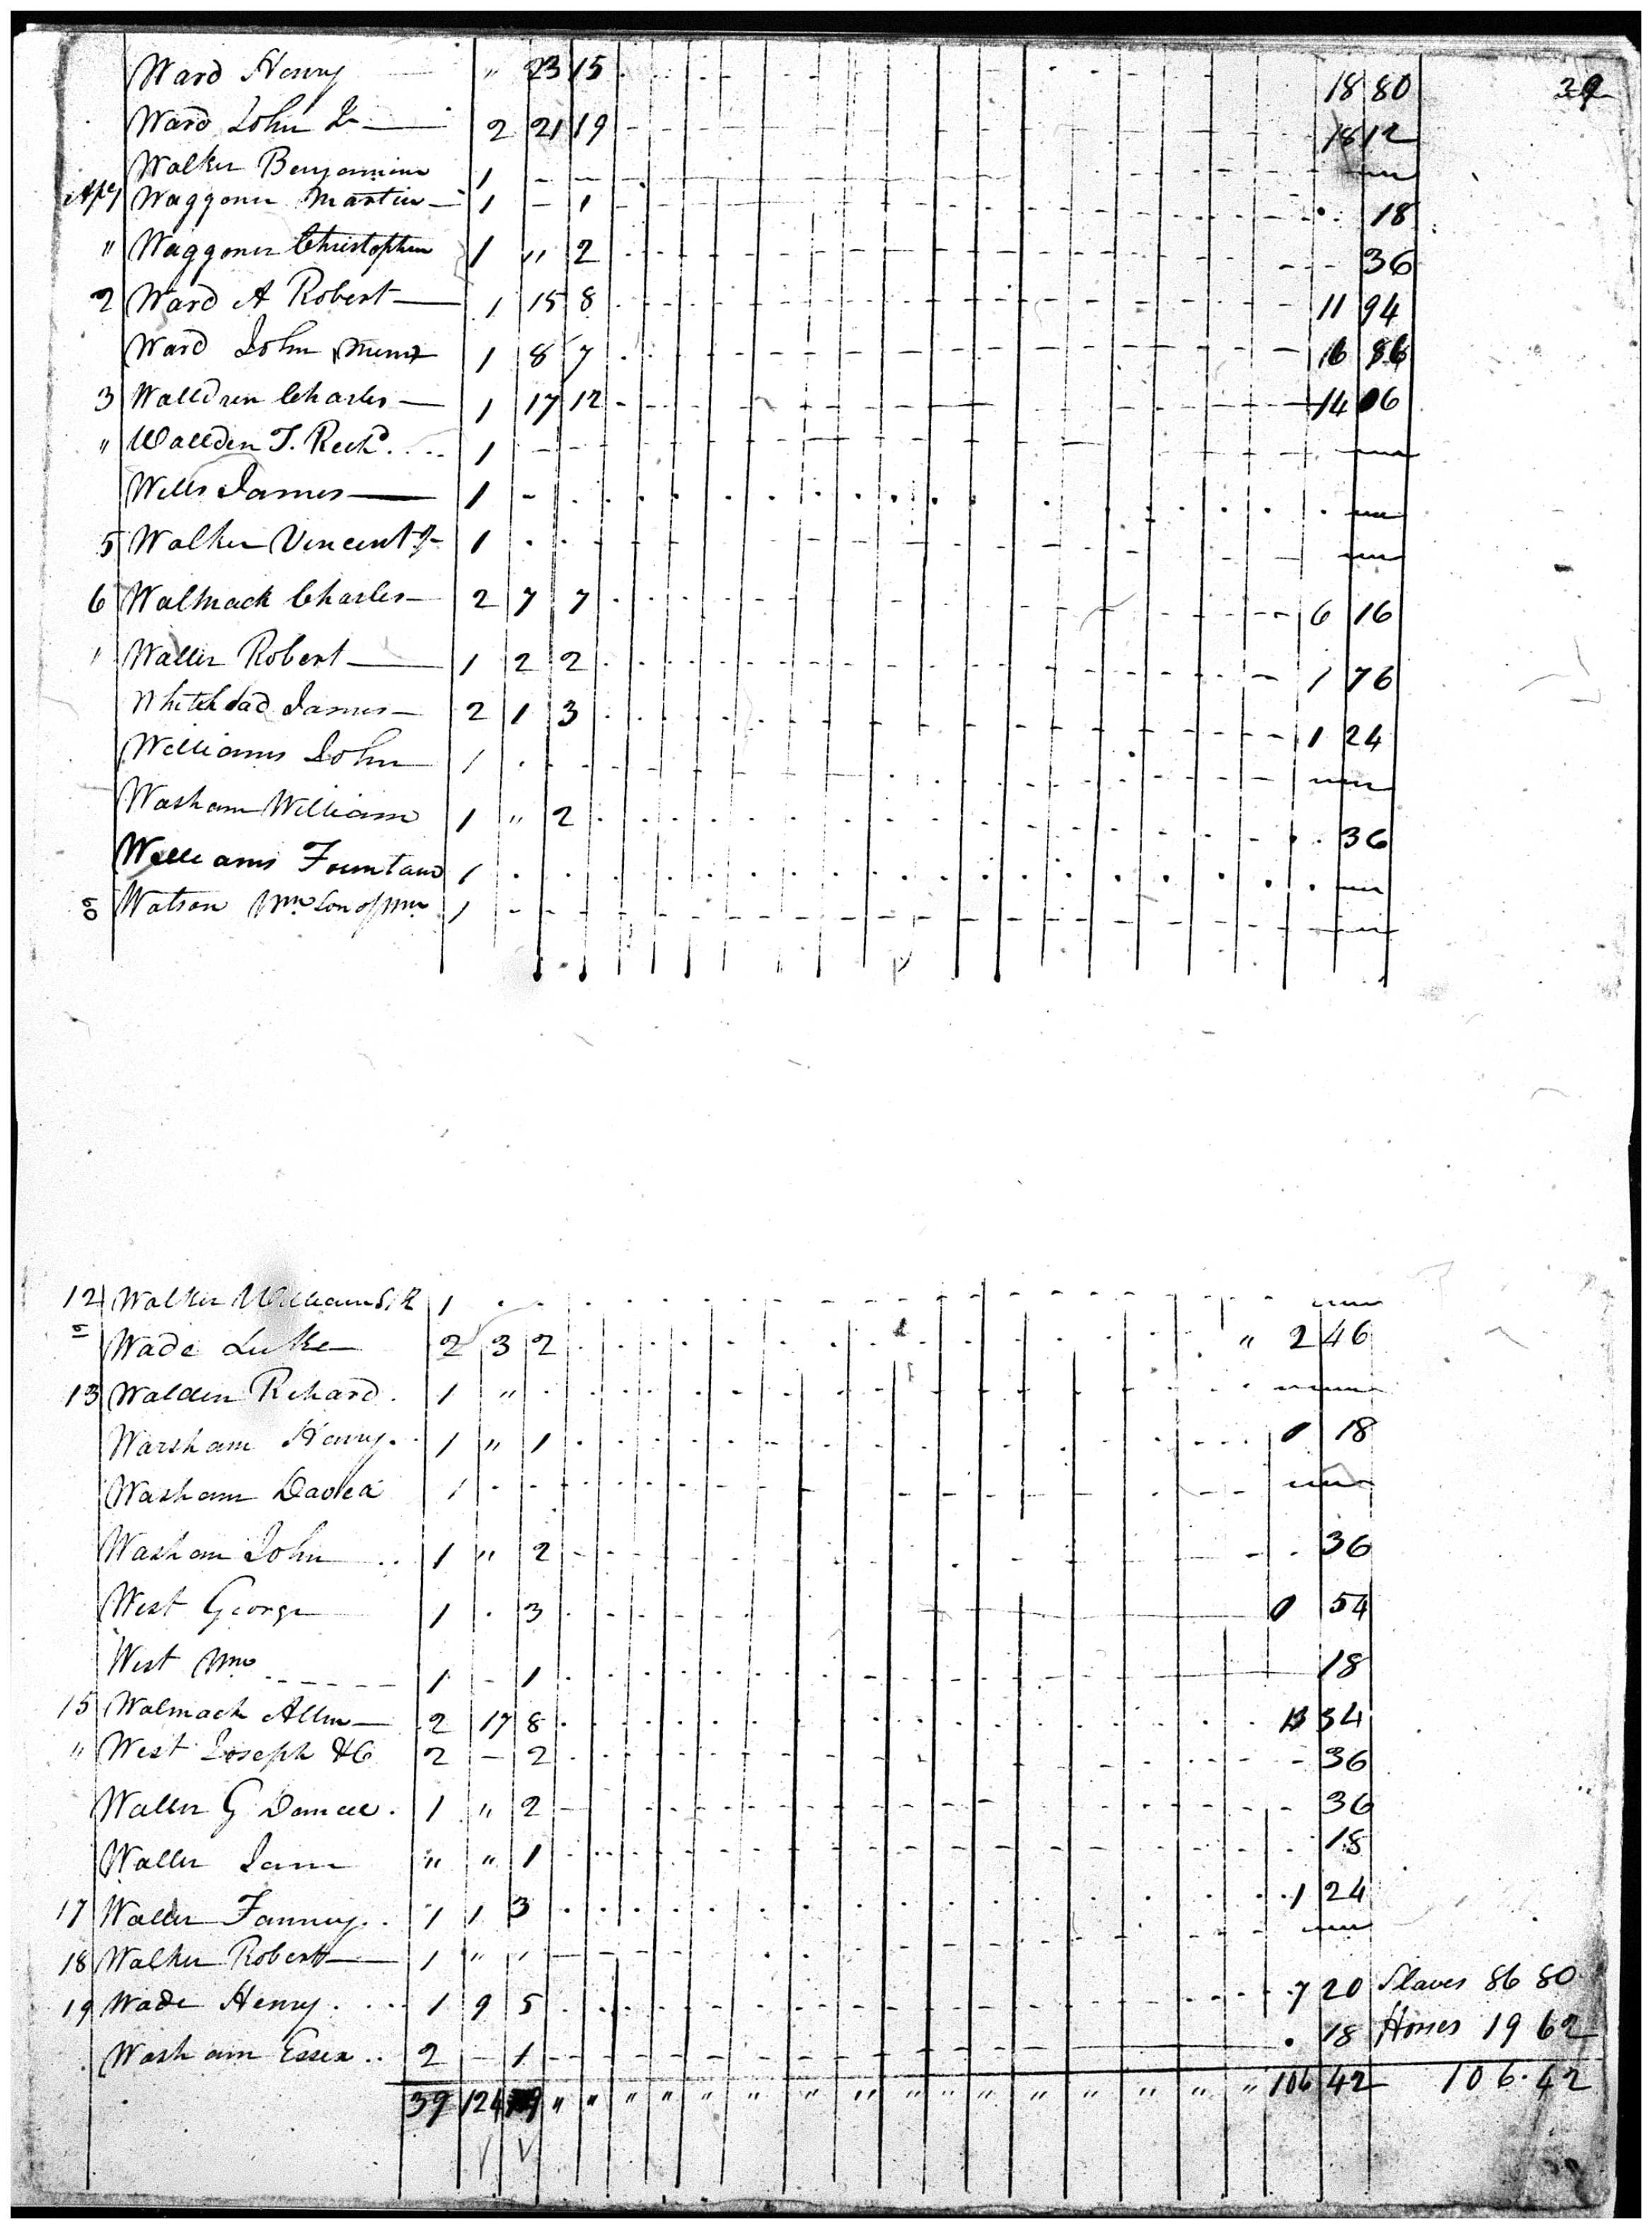 39
Ward Henry " 23 15 18 80
Ward John Jr 2 21 19 18 12
Walker Benjamin 1 - -
Waggoner Martin 1 - 1 18
" Waggoner Christopher 1 " 2 36
2 Ward A Robert 1 15 8 11 94
Ward John 1 8 7 6 86
3 Walldren Charles 1 17 12 14 06
" Wallden T. Richd 1 -
Wills James 1 -
5 Walker Vincent 1
6 Walmack Charles 2 7 7 6 16
" Waller Robert 1 2 2 1 76
Whitehead James 2 1 3 1 24
Williams John 1
Washam William 1 " 2 36
Williams Fountain 1
9 Watson Wm Son of Wm 1
12 Walker William 1
Wade Luke 2 3 2 " 2 46
13 Walden Richard 1 "
Warsham Henry 1 " 1 0 18
Washam David 1
Washam John 1 " 2 36
West George 1 3 0 54
West Wm 1 - 1 18
15 Walmack Allen 2 17 8 13 34
" West Joseph &C 2 - 2 36
Waller G Daniel 1 " 2 36
Waller Jane " " 1 18
17 Waller Fanney 1 1 3 1 24
18 Walker Robert 1 " "
19 Wade Henry 1 9 5 7 20 Slaves 86 80
Washam Essex 2 - 1 18 Horses 19 62
39 124 109 " " " " " " " " " " " " " " " " 106 42 106.42